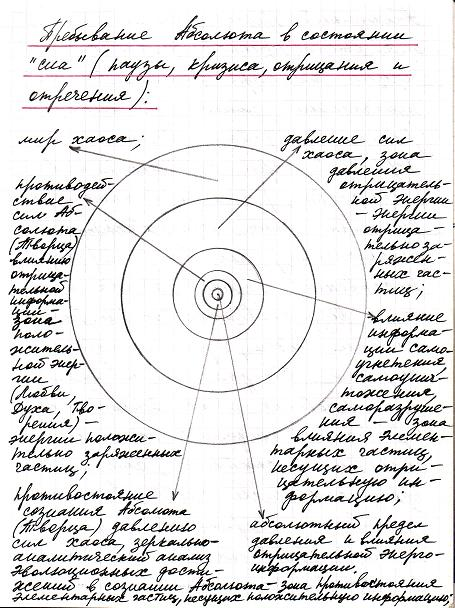 Пребывание Абсолюта в состоянии
"сна" (паузы, кризиса, отрицания и
отречения):
мир хаоса;
давление сил
хаоса, зона
давления
отрицатель-
ной энергии
- энергии
отрица-
тельно за-
ряжен-
ных час-
тиц;
противодей-
ствие
сил Аб-
солюта
(Творца)
влиянию
отрица-
тельной
информа-
ции -
зона
поло-
житель-
ной энер-
гии
(Любви,
Духа, Тво-
рения) -
энергии положи-
тельно заряженных
частиц;
влияние
информа-
ции само-
угнетения,
самоунич-
тожения,
саморазруше-
ния - зона
влияния элемен-
тарных частиц,
несущих отри-
цательную ин-
формацию;
противостояние
сознания Абсолюта
(Творца) давлению
сил хаоса, зеркально-
аналитический анализ
эволюционных дости-
жений в сознании Абсолюта - зона противостояния
элементарных частиц, несущих положительную информацию;
абсолютный предел
давления и влияния
отрицательной энерго-
информации.